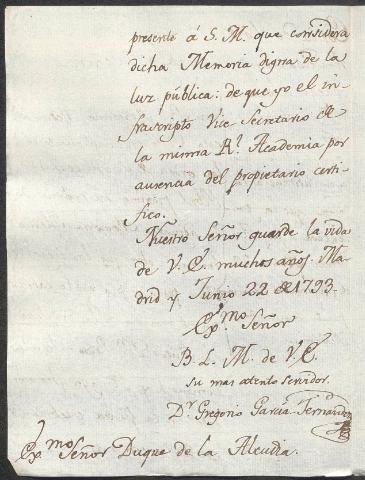 presente á S. M. que considera
dicha Memoria digna de la
luz pública: de que yo el in-
frascripto Vice Secretario de
la misma Rl. Academia por
ausencia del propietario certi-
fico.
Nuestro Señor guarde la vida
de V. E. muchos años. Ma-
drid y Junio 22 de 1793.
Exmo. Señor
B. L. M. de V. E.
su mas atento servidor.
Dr. Gregorio Garcia Fernandez
Exmo. Señor Duque de la Alcudia.